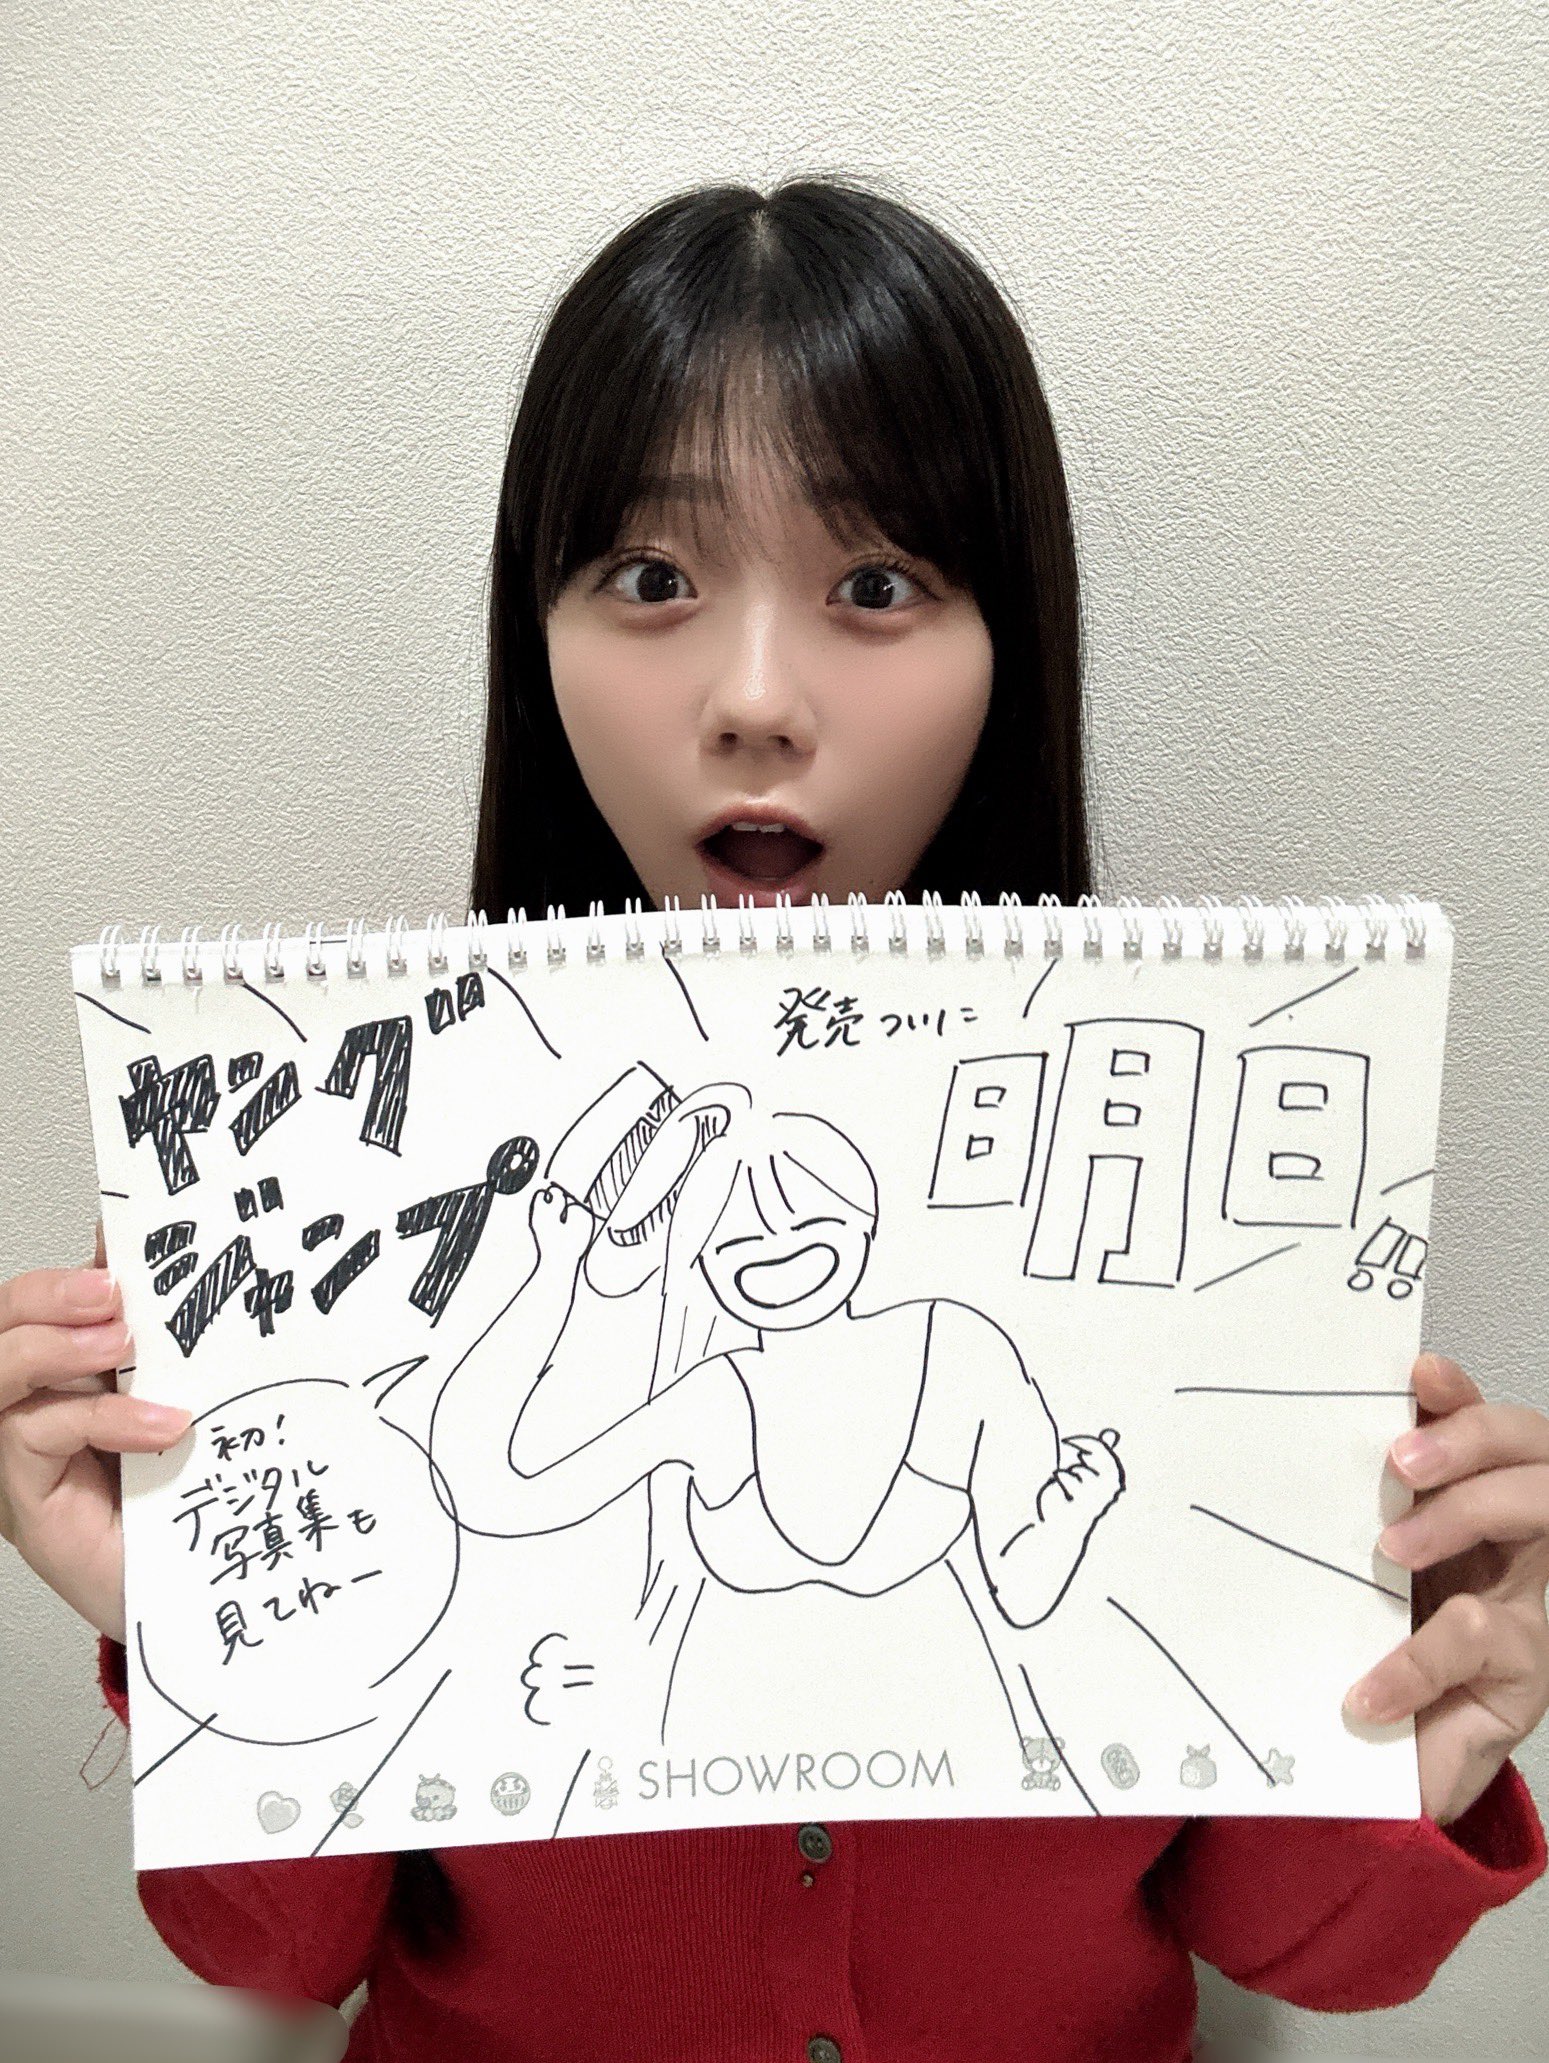 ヤング
ジャンプ
発売ついに
明日
初！
デジタル
写真集も
見てねー
SHOWROOM